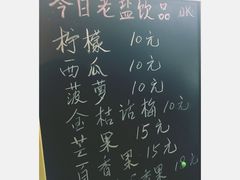 今日老盐饮品 OK
柠檬 10元
西瓜 10元
菠萝 10元
金桔话梅 10元
芒果 15元
百香果 15元
香果 18元